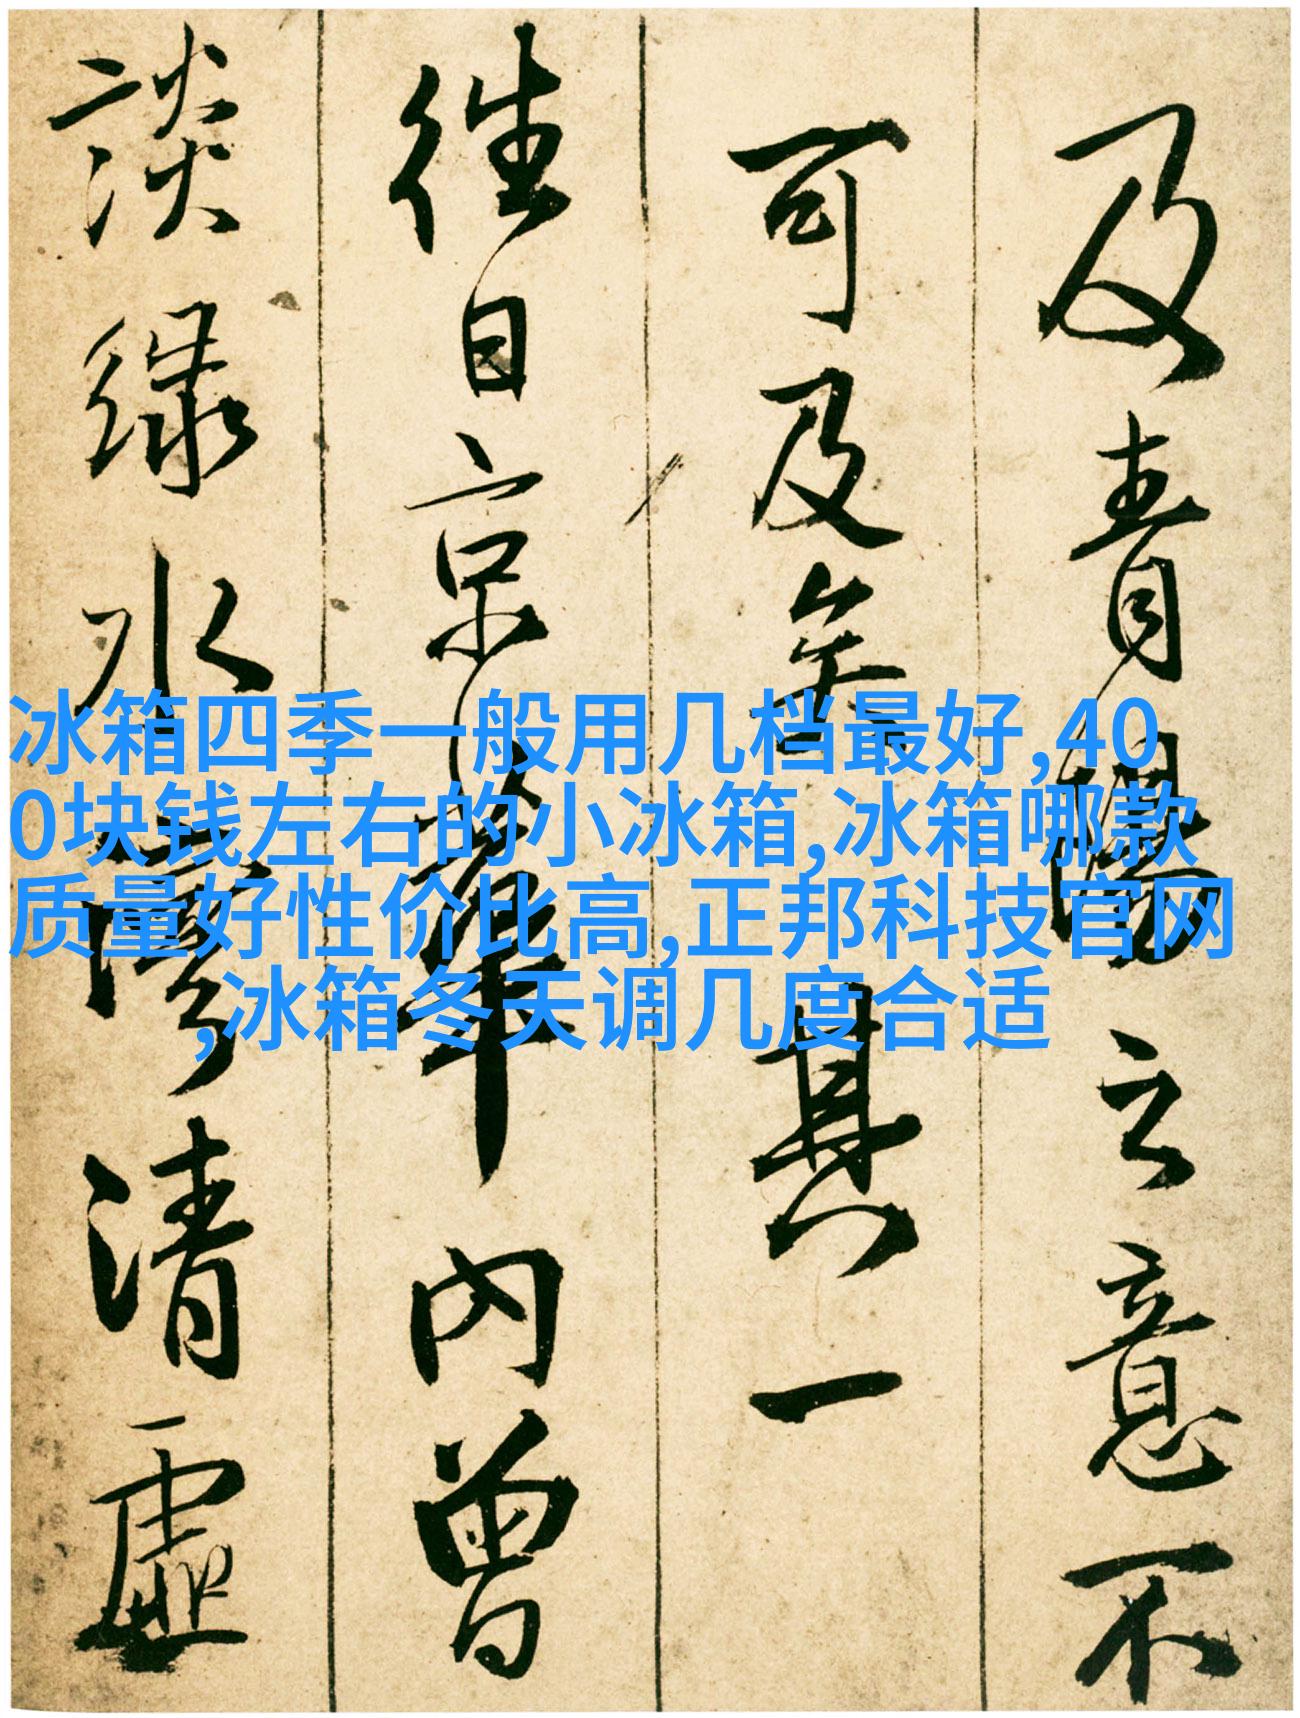 及青之意不
可及矣其一
往日京內曾
談綠水清虛
冰箱四季一般用几档最好,40
0块钱左右的小冰箱,冰箱哪款
质量好性价比高,正邦科技官网
,冰箱冬天调几度合适